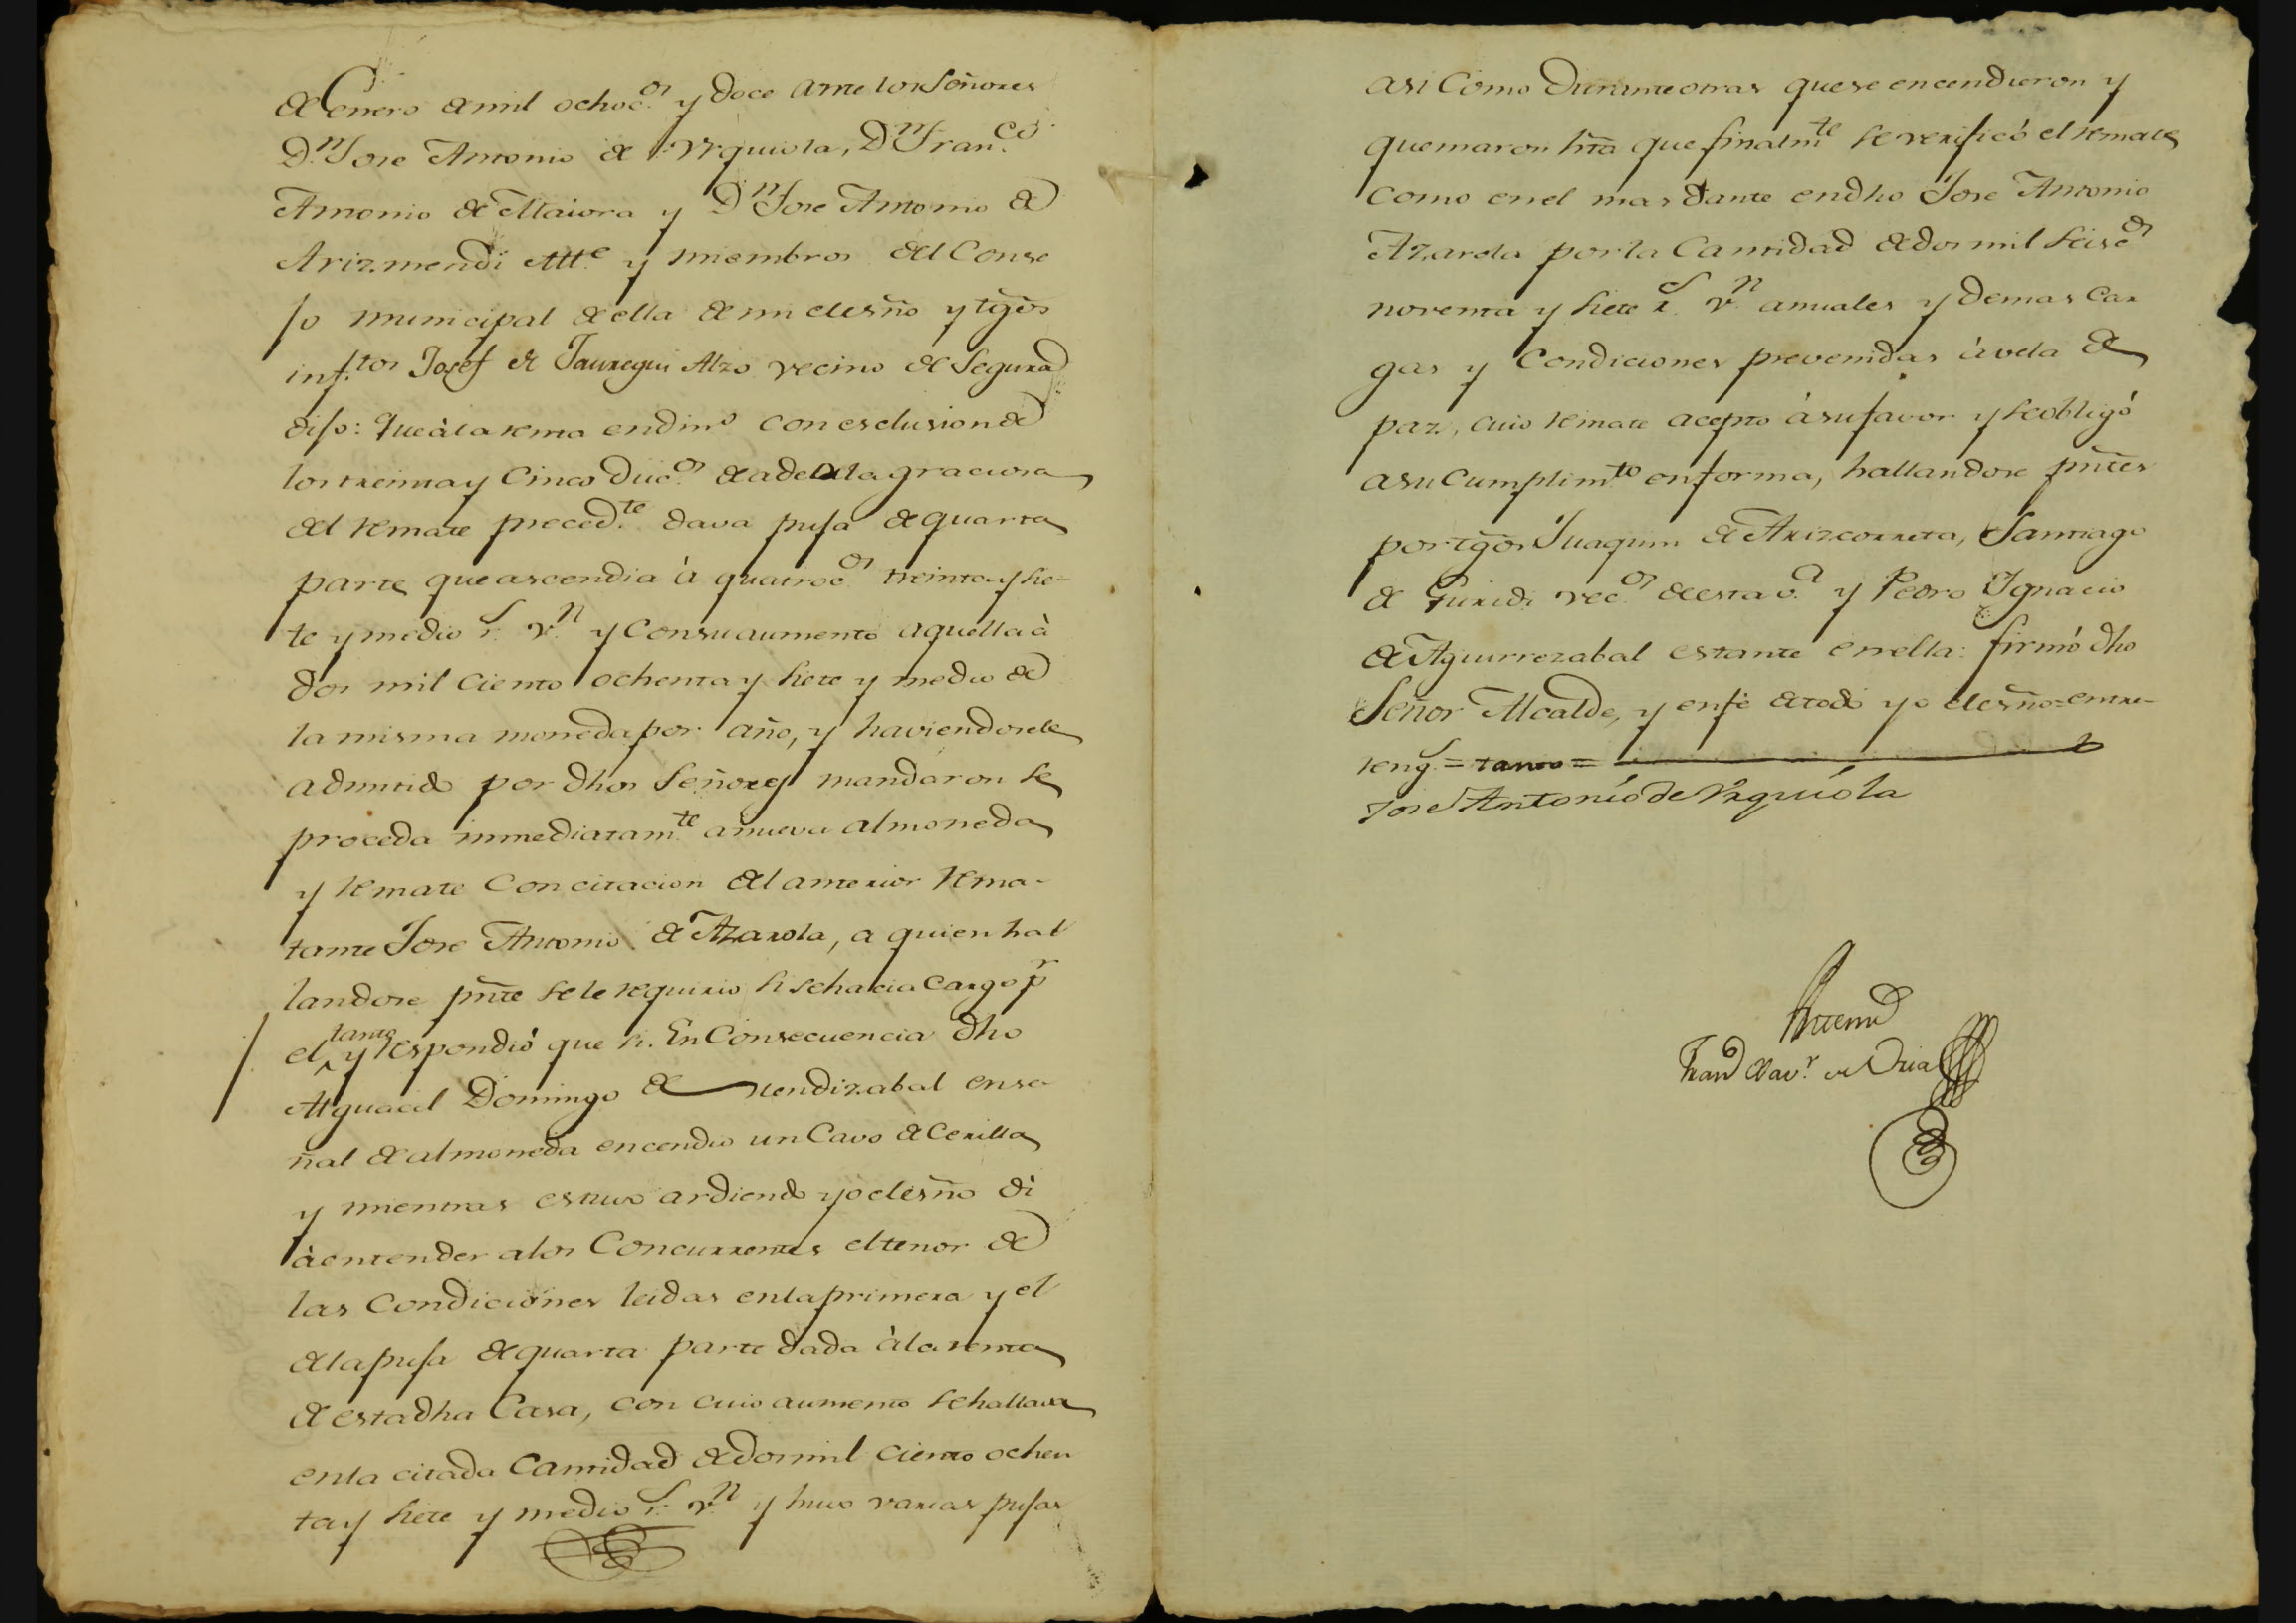 de Enero de mil ochoc.os y doce ante los Señores
D.n Jose Antonio de Urquiola, D.n Fran.co
Antonio de Maiora y D.n Jose Antonio de
Arizmendi Alt.e y miembros del Conse
jo municipal de ella de mi el esño y tgõs
inf.tos Josef de Jauregui Alzo vecino de Segura
dijo: Que à la renta en din.o con esclusion de
los treinta y Cinco Duc.os de adeala graciosa
del remate preced.te dava puja de quarta
parte que ascendia à quatroc.os treinta y sie-
te y medio r.s v.n y con su aumento aquella à
dos mil ciento ochenta y siete y medio de
la misma moneda por año, y haviendosele
admitido por dhos Señores mandaron se
proceda inmediatam.te a nueva almoneda
y remate con citacion del anterior rema-
tante Jose Antonio de Azarola, a quien hal
landose pñte se le requirio si se hacia cargo p.r
el tanto y respondió que si. En Consecuencia dho
Alguacil Domingo de Mendizabal en se-
ñal de almoneda encendio un Cavo de Cerilla
y mientras estuvo ardiendo yo el esño di
à entender a los Concurrentes el tenor de
las Condiciones leidas en la primera y el
de la puja de quarta parte dada à la renta
de esta dha Casa, con cuio aumento se hallava
en la citada Cantidad de dos mil ciento ochen
ta y siete y medio r.s v.n y huvo varias pujas
asi Como Durante otras que se encendieron y
quemaron hta que finalm.te se verificó el remate
como en el mas dante en dho Jose Antonio
Azarola por la Cantidad de dos mil seisc.os
noventa y siete r.s v.n anuales y demas car
gas y Condiciones prevenidas à vela de
paz, cuio remate acepto à su favor y se obligó
a su Cumplim.to en forma, hallandose pñtes
por tgõs Juaquin de Arizcorreta, Santiago
de Guridi vec.os de esta v.a y Pedro Ignacio
de Aguirrezabal estante en ella: firmó dho
Señor Alcalde, y en fe de todo yo el esño=entre-
reng.s = tanto =
Jose Antonio de Urquiola
Antemi
Fran.co Xav.r de Oria